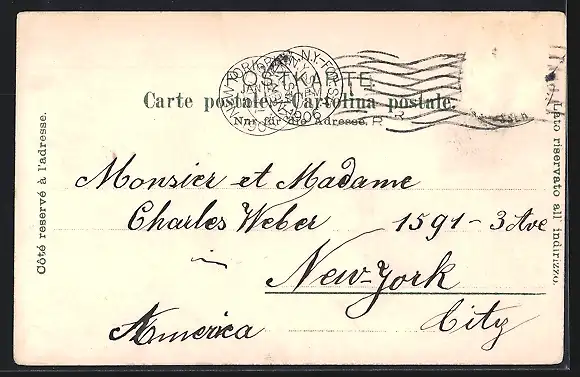 POSTKARTE
Carte postale. Cartolina postale.
Nur für die Adresse.
N.Y. FOR.
JAN
PM
1906
Côté reservé à l'adresse.
Lato riservato all' indirizzo.
Monsier et Madame
Charles Weber 1591 - 3 Ave
New-York
City
America